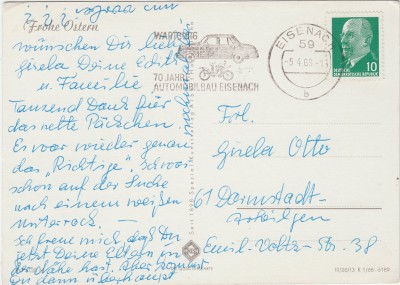 Frohe Ostern
wünschen Dir liebe
Gisela Deine Edith
u. Familie
Tausend Dank für
das nette Päckchen.
Es war wieder genau
das „Richtige" ich war
schon auf der Suche
nach einem weißen
Unterrock —
Ich freue mich daß Du
jetzt Deine Eltern in
der Nähe hast. Aber
Du dann überhaupt
WARTBURG
70 JAHRE
AUTOMOBILBAU EISENACH
EISENACH
59
b
DEUTSCHE DEMOKRATISCHE REPUBLIK
10
Frl.
Gisela Otto
61 Darmstadt-
Arheilgen
Emil-Voltz-Str. 38